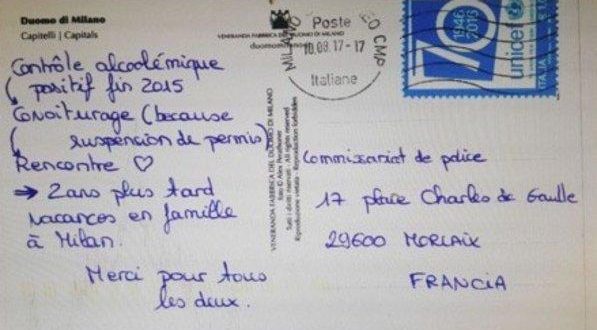 Duomo di Milano
Capitelli | Capitals
VENERANDA FABBRICA DEL DUOMO DI MILANO
Contrôle alcoolémique
positif fin 2015
Covoiturage (because
suspension de permis)
Rencontre ♡
→ 2 ans plus tard
vacances en famille
à Milan.
Merci pour tous
les deux.
VENERANDA FABBRICA DEL DUOMO DI MILANO
Tutti i diritti riservati - All rights reserved
Riproduzione vietata - Reproduction forbidden
MILANO
CMP
Poste
10.08.17-17
Italiane
1946
2016
70
unicef
ITALIA
Commissariat de police
17 place Charles de Gaulle
29600 MORLAIX
FRANCIA